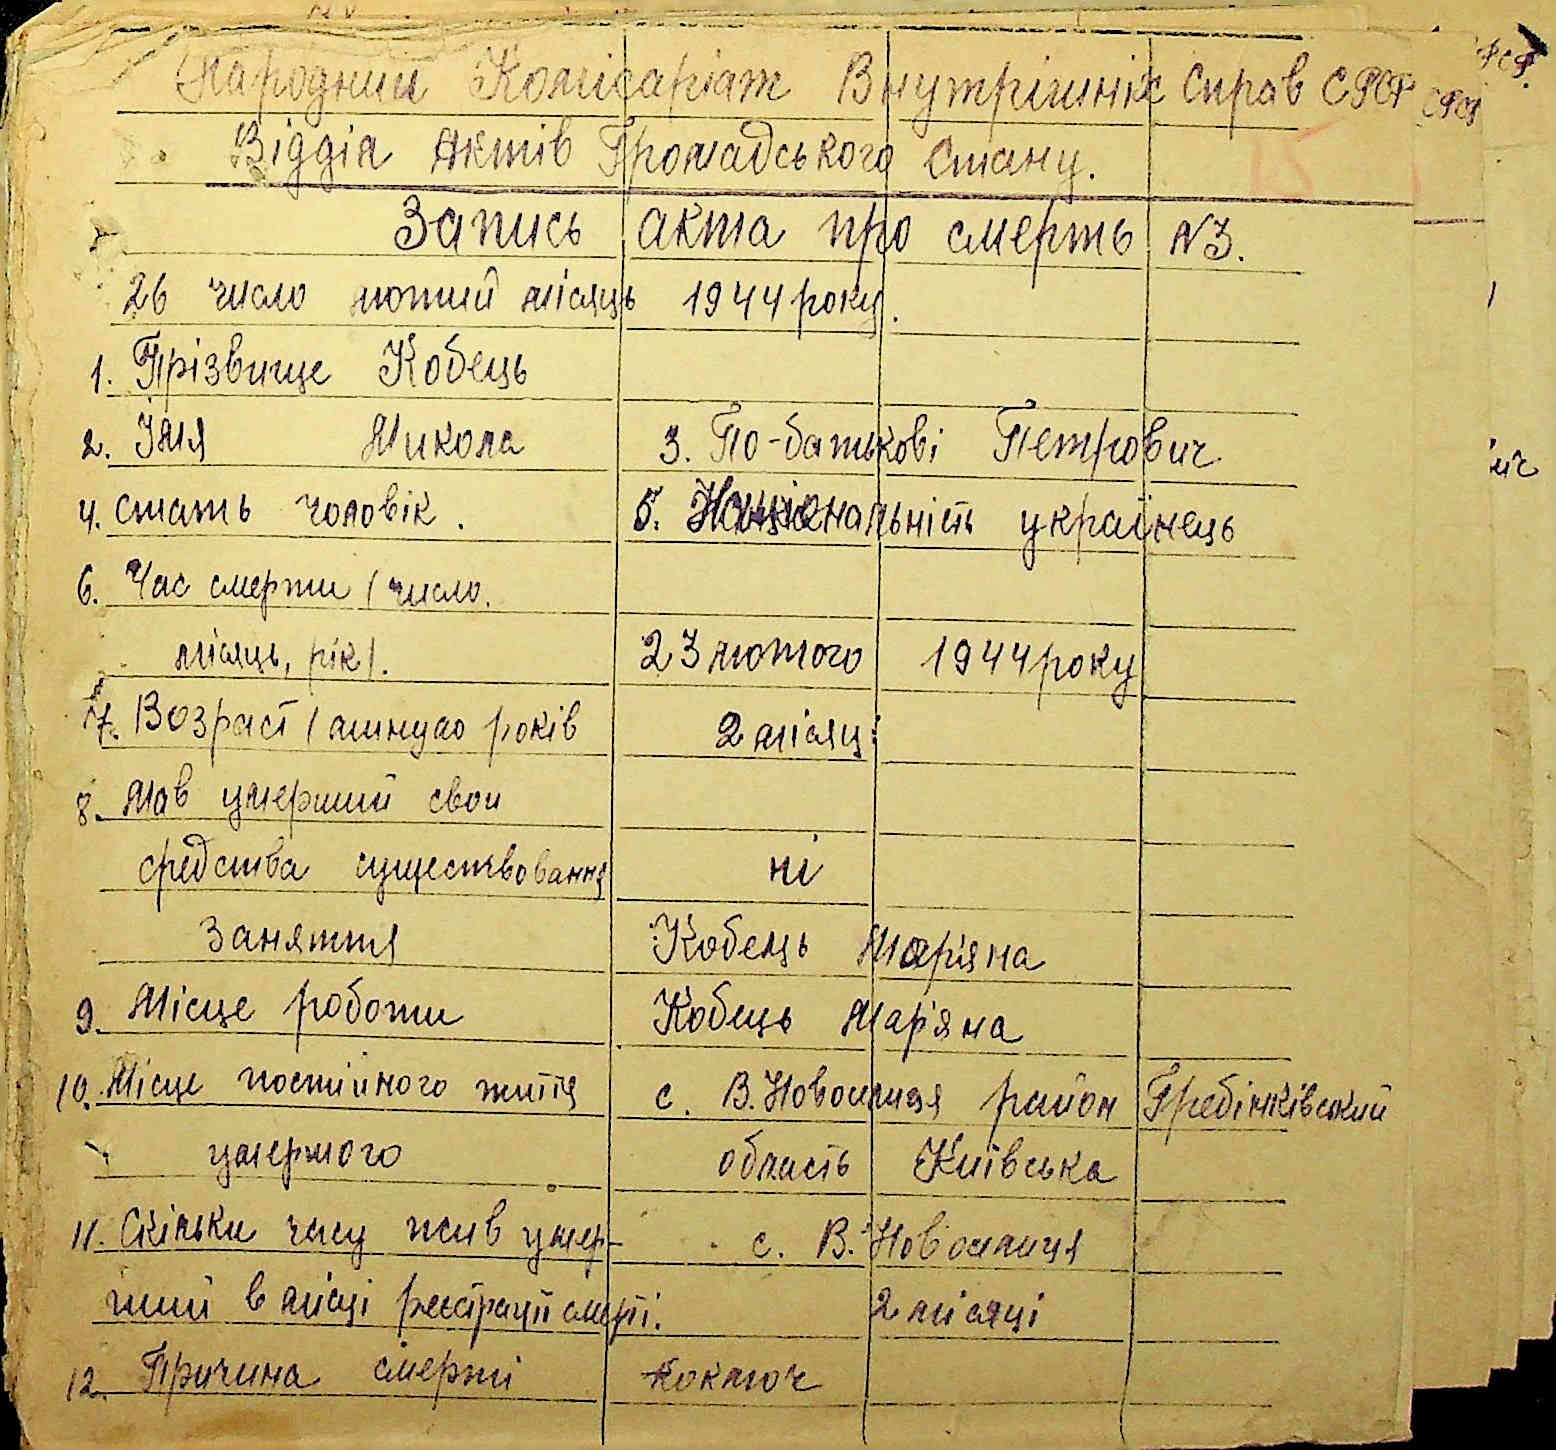 Народний Комісаріат Внутрішніх Справ СРСР
Відділ Актів Громадського Стану.
Запись акта про смерть №3.
26 число лютий місяць 1944 року.
1. Прізвище Кобець
2. Імя Микола 3. По-батькові Петрович
4. стать чоловік. 5. Національність українець
6. Час смерти (число.
місяць, рік). 23 лютого 1944 року
7. Возраст (минуло років 2 місяці
8. Мав умерший свои
средства существовання ні
Заняття Кобець Мар'яна
9. Місце роботи Кобець Мар'яна
10. Місце постійного життя с. В. Новоселиця район Гребінківський
умершого область Київська
11. Скільки часу жив умер- с. В. Новоселиця
ший в місці реєстрації смерті. 2 місяці
12. Причина смерті коключ